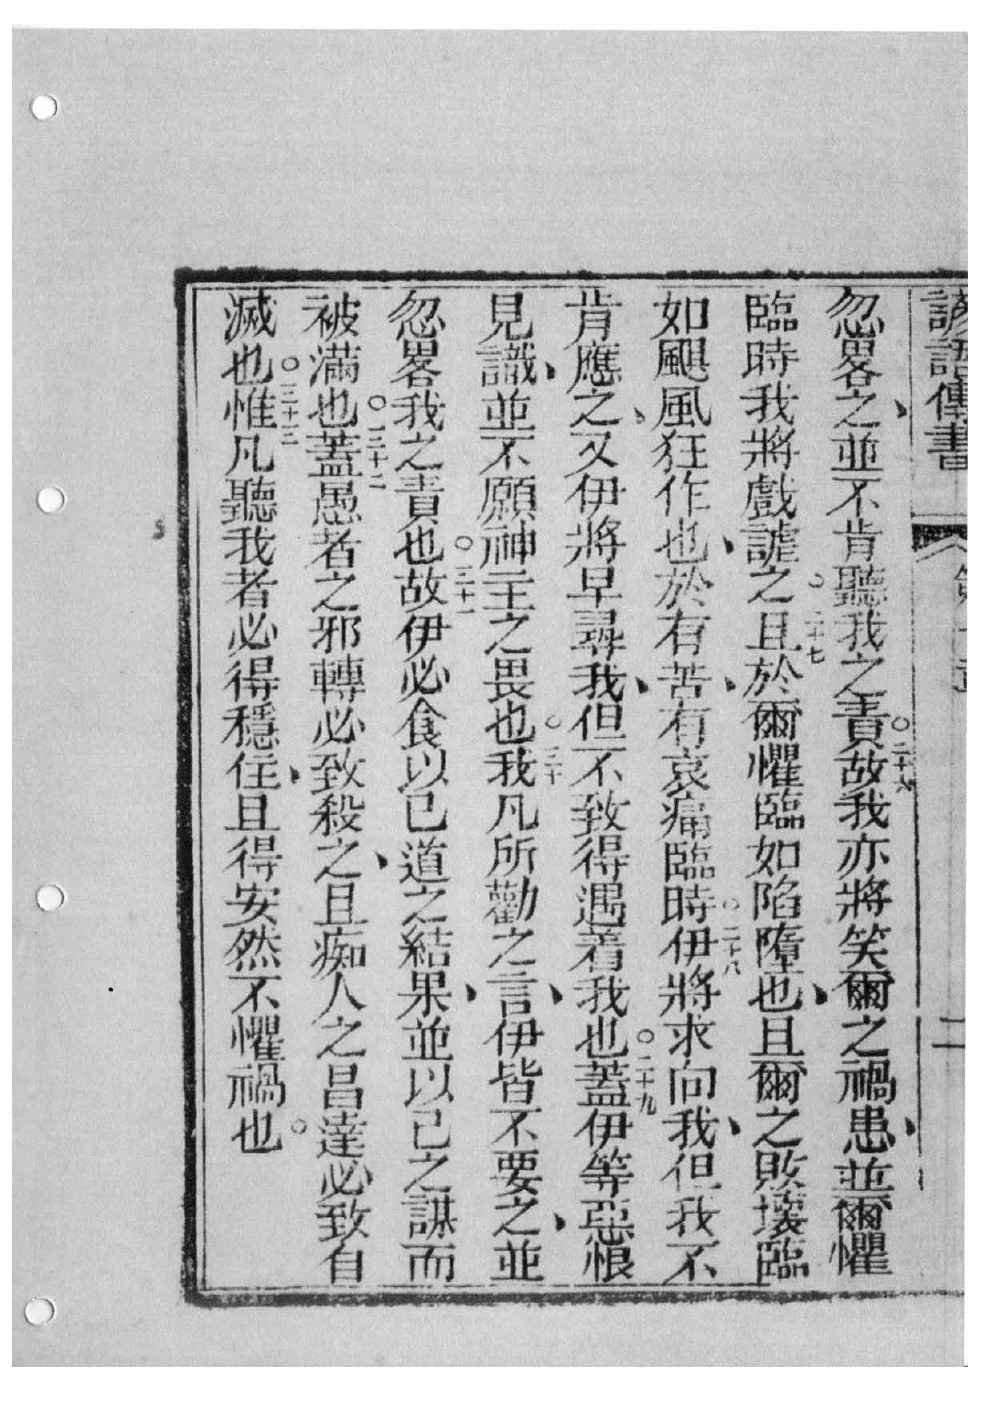 諺語傳書
二
忽畧之、並不肯聽我之責○二十六故我亦將笑爾之禍患、並爾懼
臨時我將戲謔之○二十七且於爾懼臨如陷墮也、且爾之敗壞臨
如颶風狂作也、於有苦、有哀痛臨時○二十八伊將求向我、但我不
肯應之、又伊將早尋我、但不致得遇着我也○二十九蓋伊等惡恨
見識、並不願神主之畏也○三十我凡所勸之言、伊皆不要之、並
忽畧我之責也○三十一故伊必食以己道之結果、並以己之謀而
被滿也○三十二蓋愚者之邪轉必致殺之、且痴人之昌達必致自
滅也○三十三惟凡聽我者必得穩住、且得安然不懼禍也○